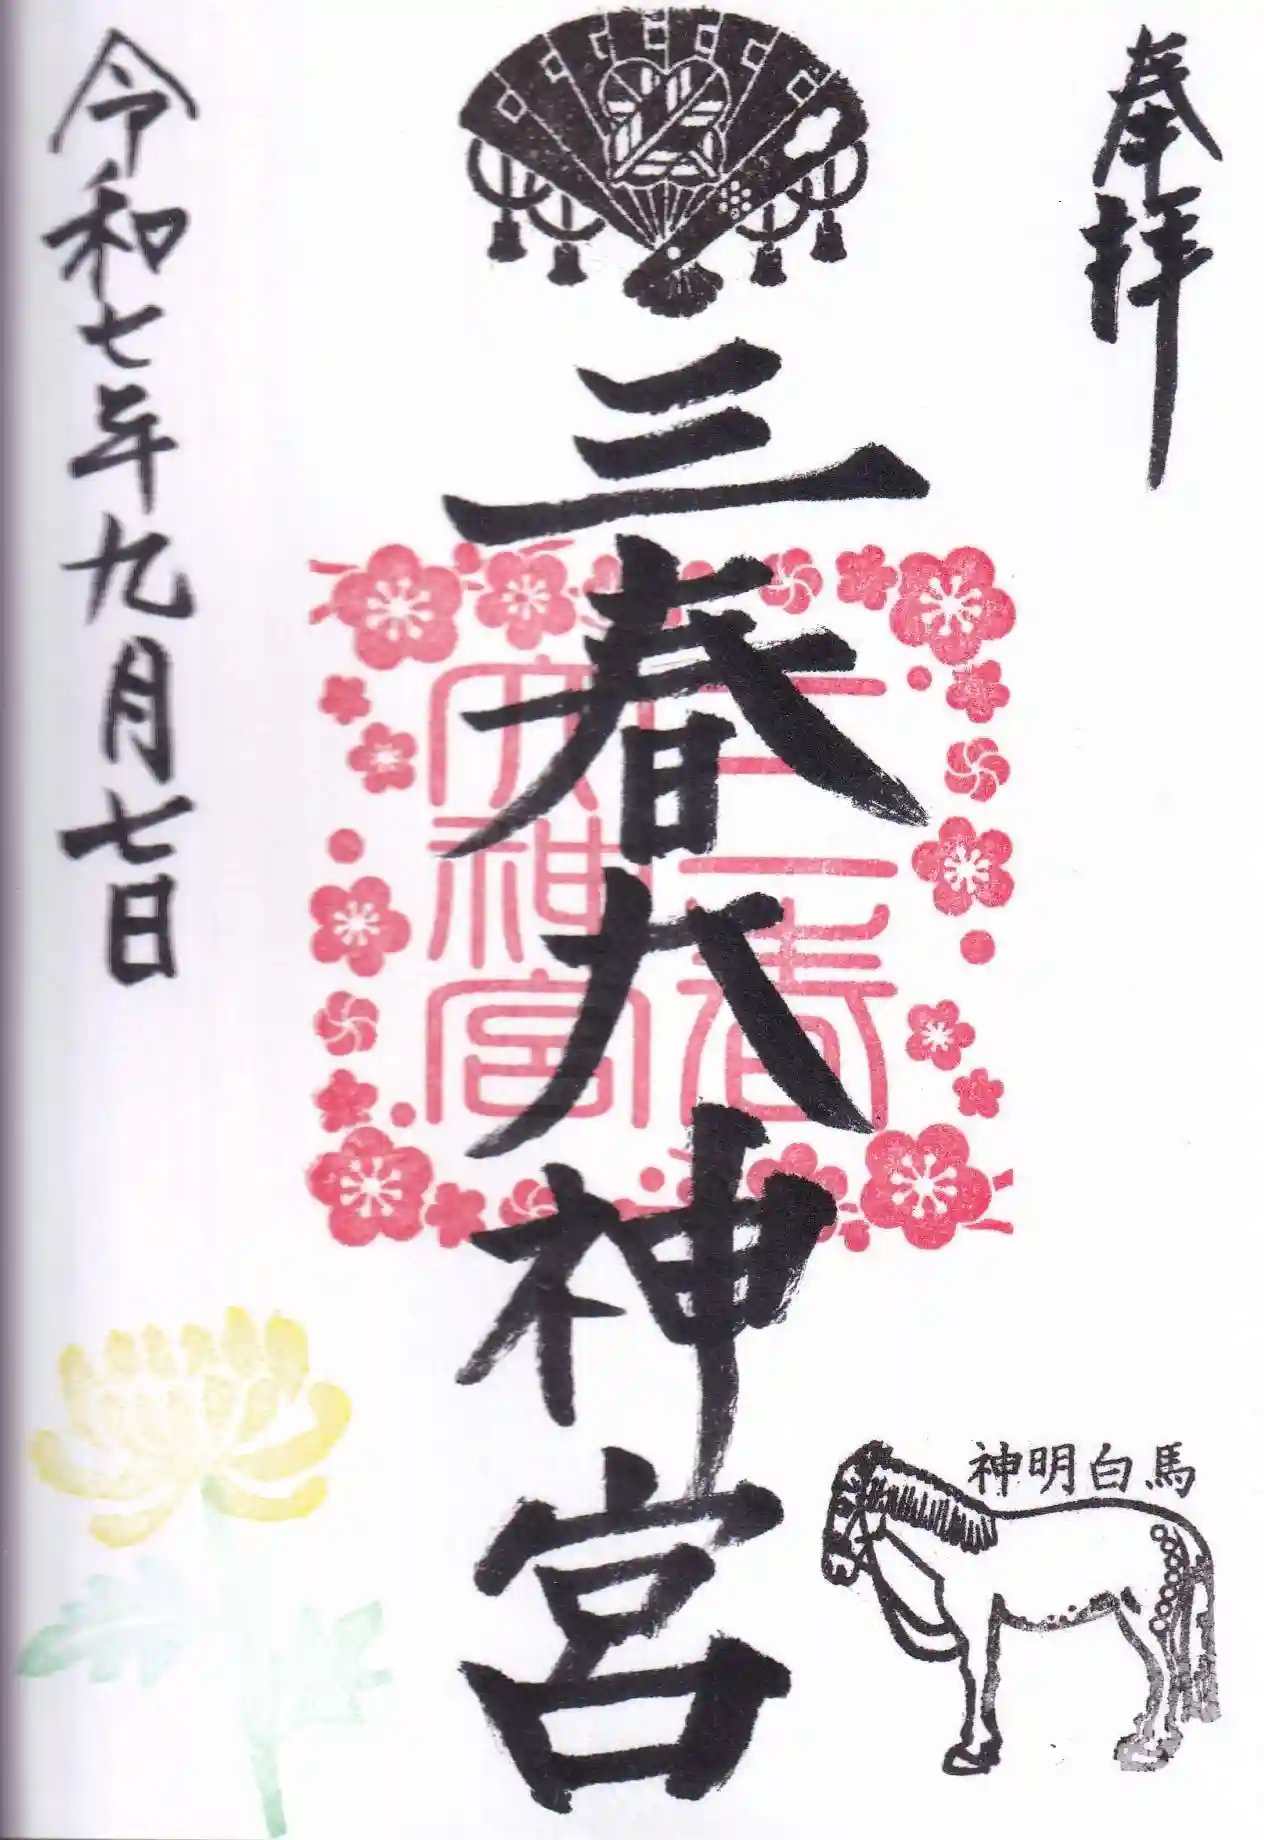 奉拝
神明白馬
三春大神宮
三春大神宮
令和七年九月七日